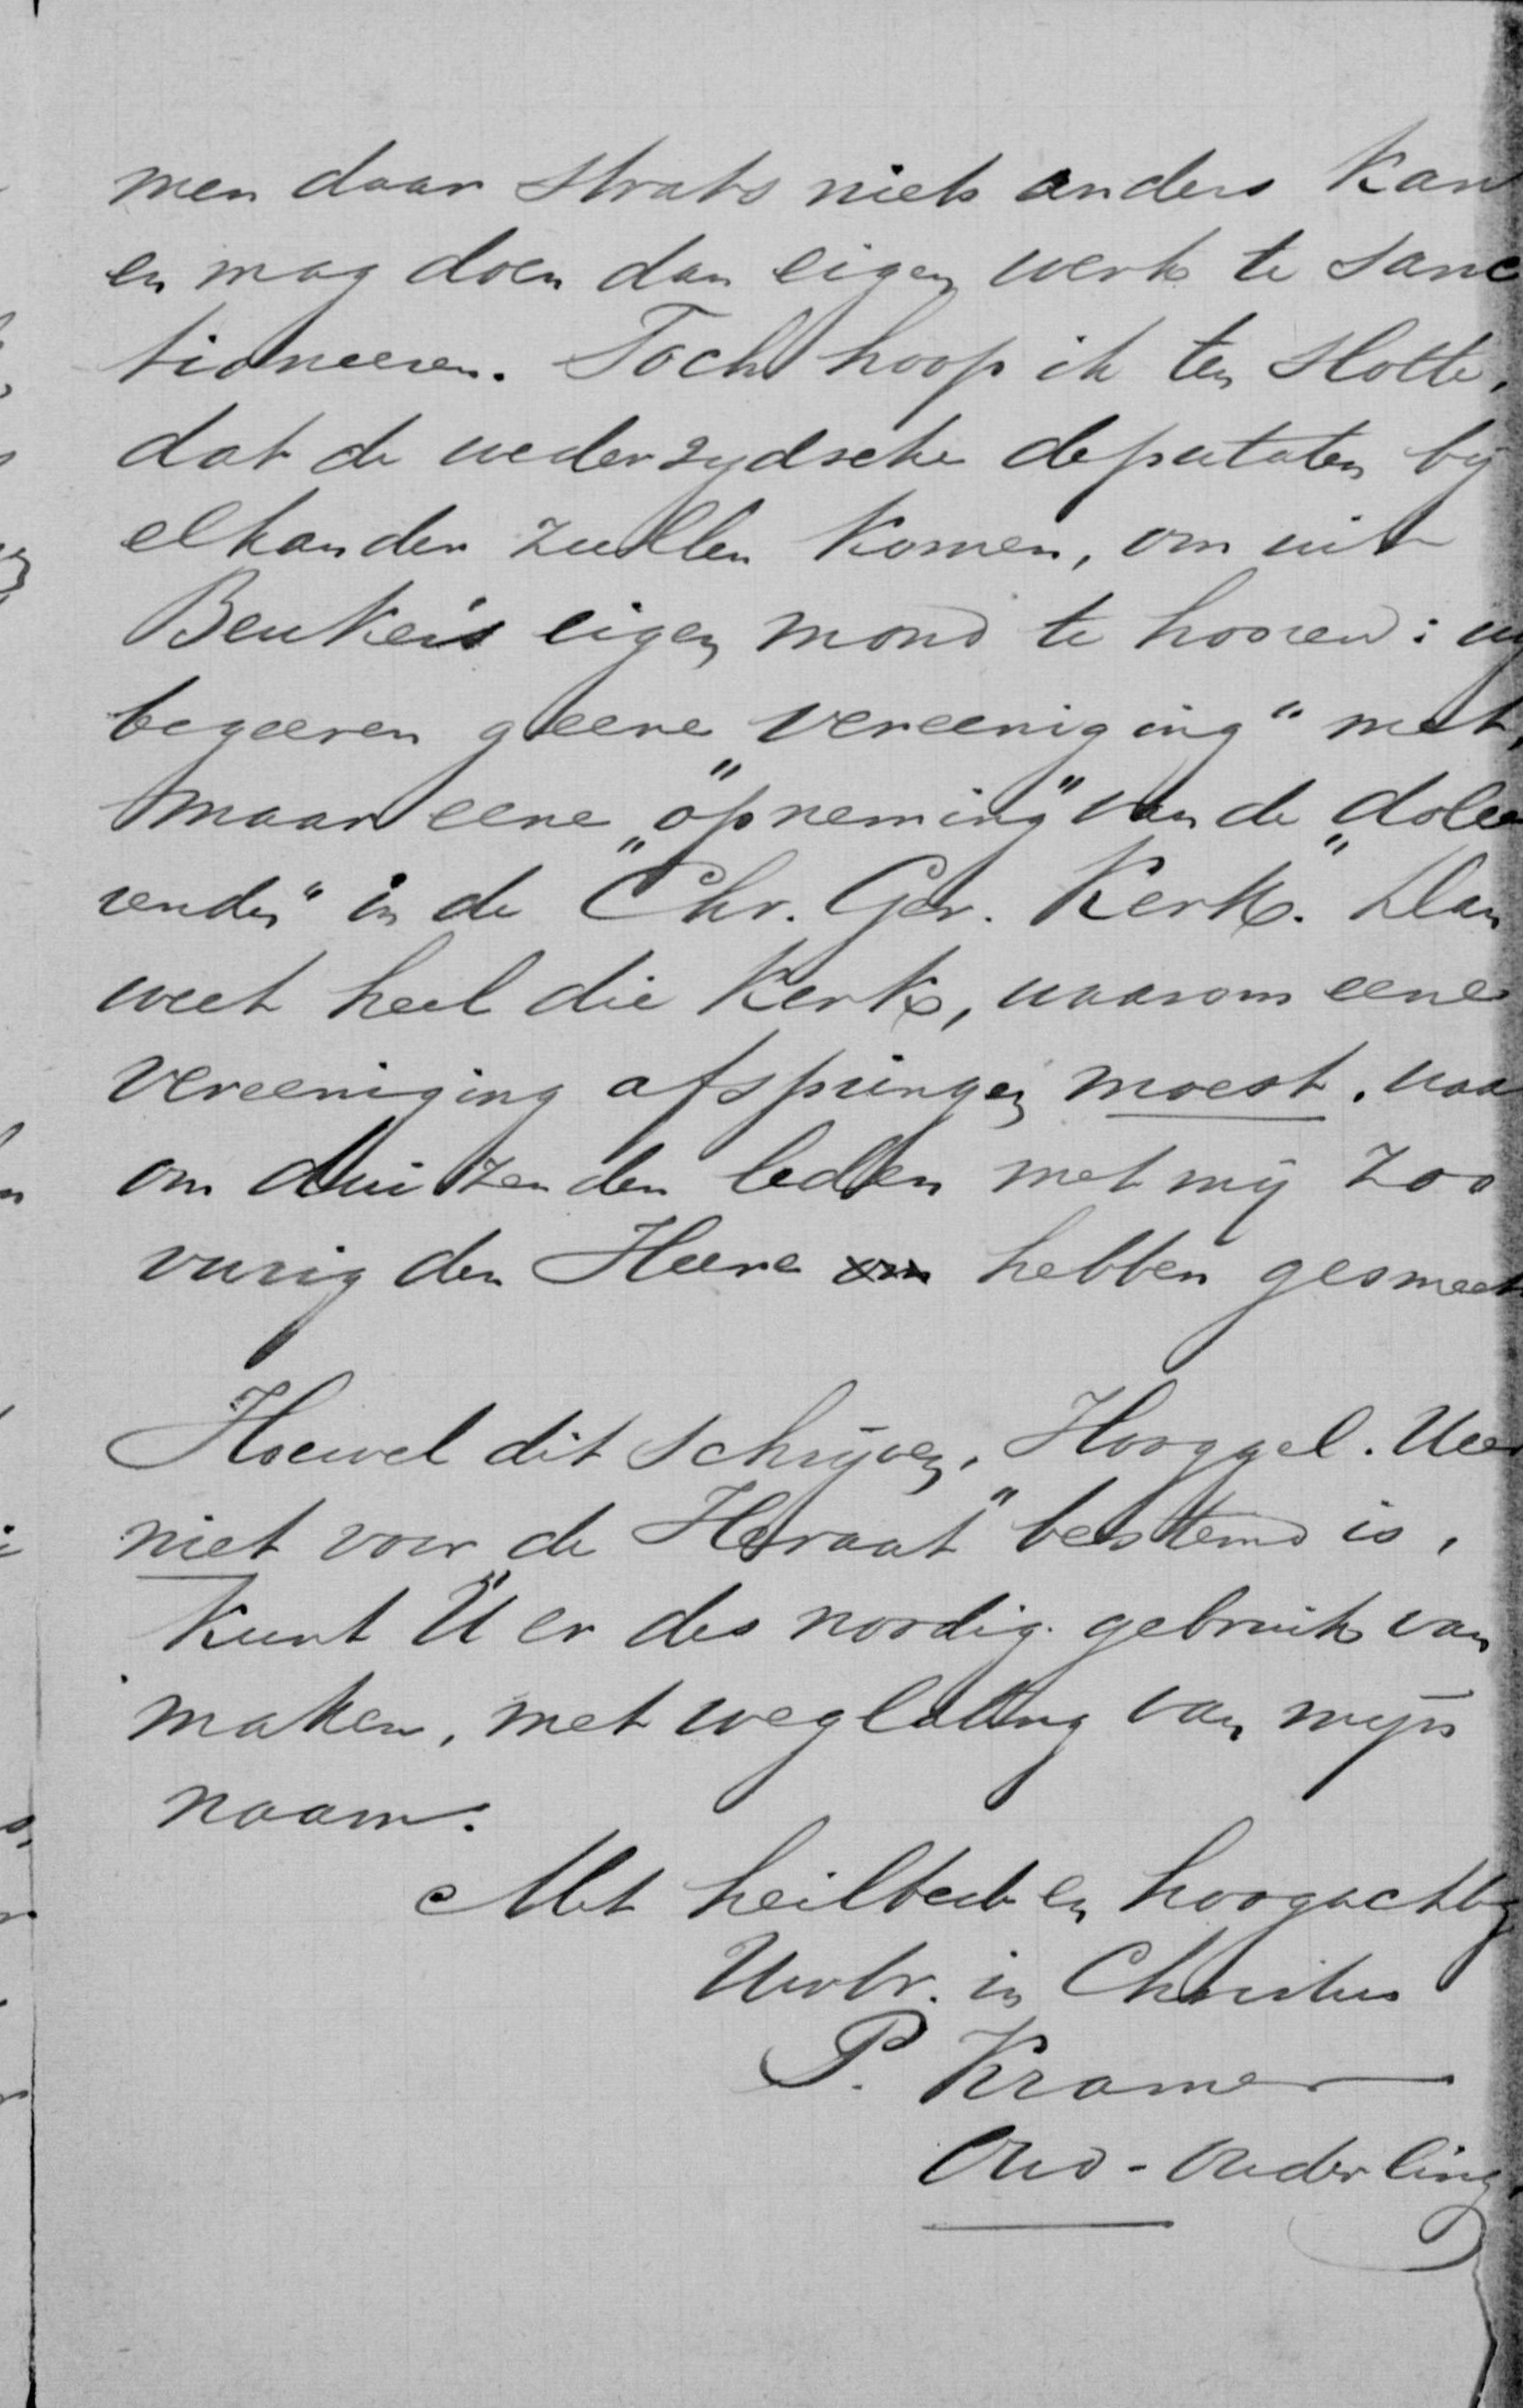 men daar straks niets anders kan
en mag doen dan eigen werk te sanc
tioneeren. Toch hoop ik ten slotte,
dat de wederzydsche deputaten bij
elkander zullen komen, om uit
Beuker's eigen mond te hooren: wij
begeeren geene "vereeniging" met,
maar eene "opneming" van de "dolee
renden" in de "Chr. Ger. Kerk." Dan
weet heel die Kerk, waarom eene
vereeniging afspringen moest, waar
om duizenden leden met mij zoo
vurig den Heere om hebben gesmeekt

Hoewel dit schrijven, Hooggel. Heer
niet voor de "Heraut" bestemd is,
kunt U er des noodig gebruik van
maken, met weglating van mijn
naam.
Met heilbede en hoogachtg
Uw br. in Christus
P. Kramer
Oud-Ouderling